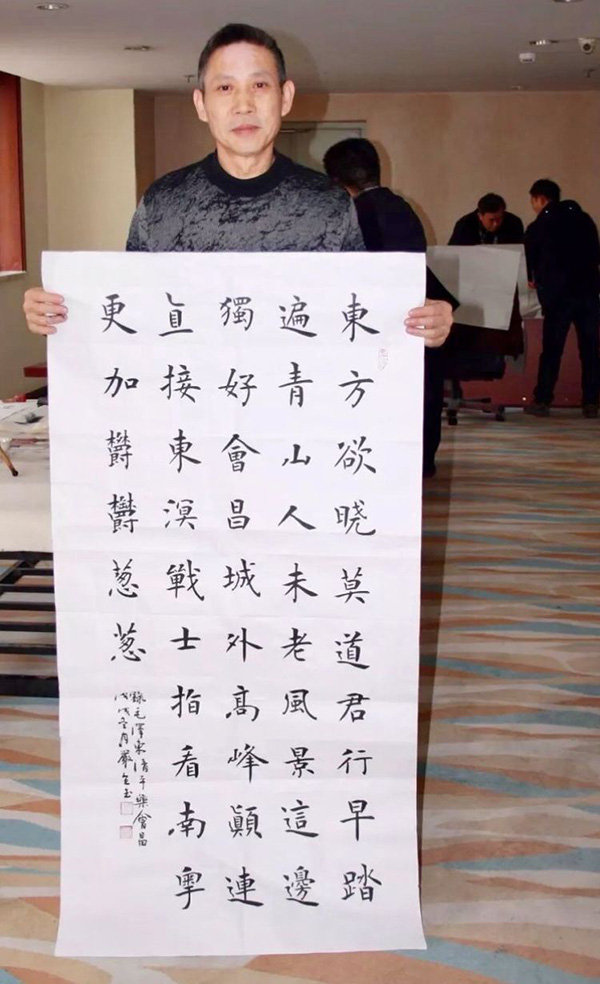 東方欲晓莫道君行早踏
遍青山人未老風景這邊
獨好會昌城外高峰顛連
直接東溟戰士指看南粤
更加鬱鬱葱葱
錄毛澤東清平樂會昌
戊戌冬月嚴玉